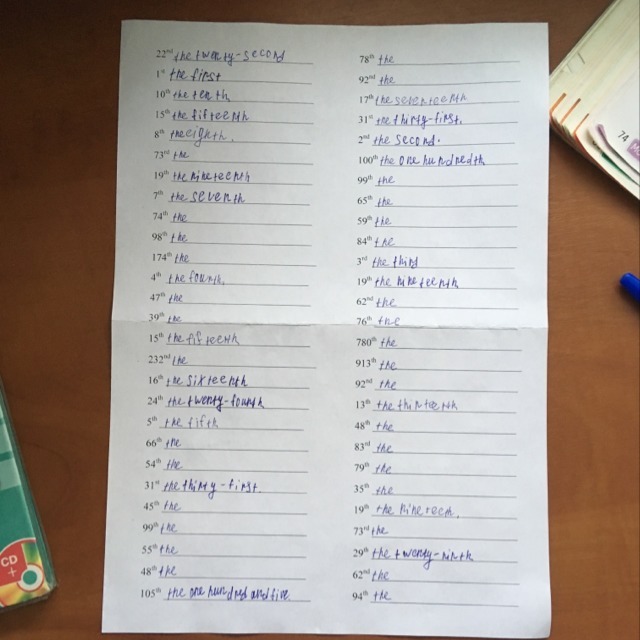 22nd the twenty-second
1st the first
10th the tenth
15th the fifteenth
8th the eighth.
73rd the
19th the nineteenth
7th the seventh
74th the
98th the
174th the
4th the fourth.
47th the
39th the
15th the fifteenth
232nd the
16th the sixteenth
24th the twenty-fourth
5th the fifth
66th the
54th the
31st the thirty-first.
45th the
99th the
55th the
48th the
105th the one hundred and five
78th the
92nd the
17th the seventeenth
31st the thirty-first.
2nd the second.
100th the one hundredth
99th the
65th the
59th the
84th the
3rd the third
19th the nineteenth
62nd the
76th the
780th the
913th the
92nd the
13th the thirteenth
48th the
83rd the
79th the
35th the
19th the nineteeth.
73rd the
29th the twenty-ninth
62nd the
94th the
74
CD
+